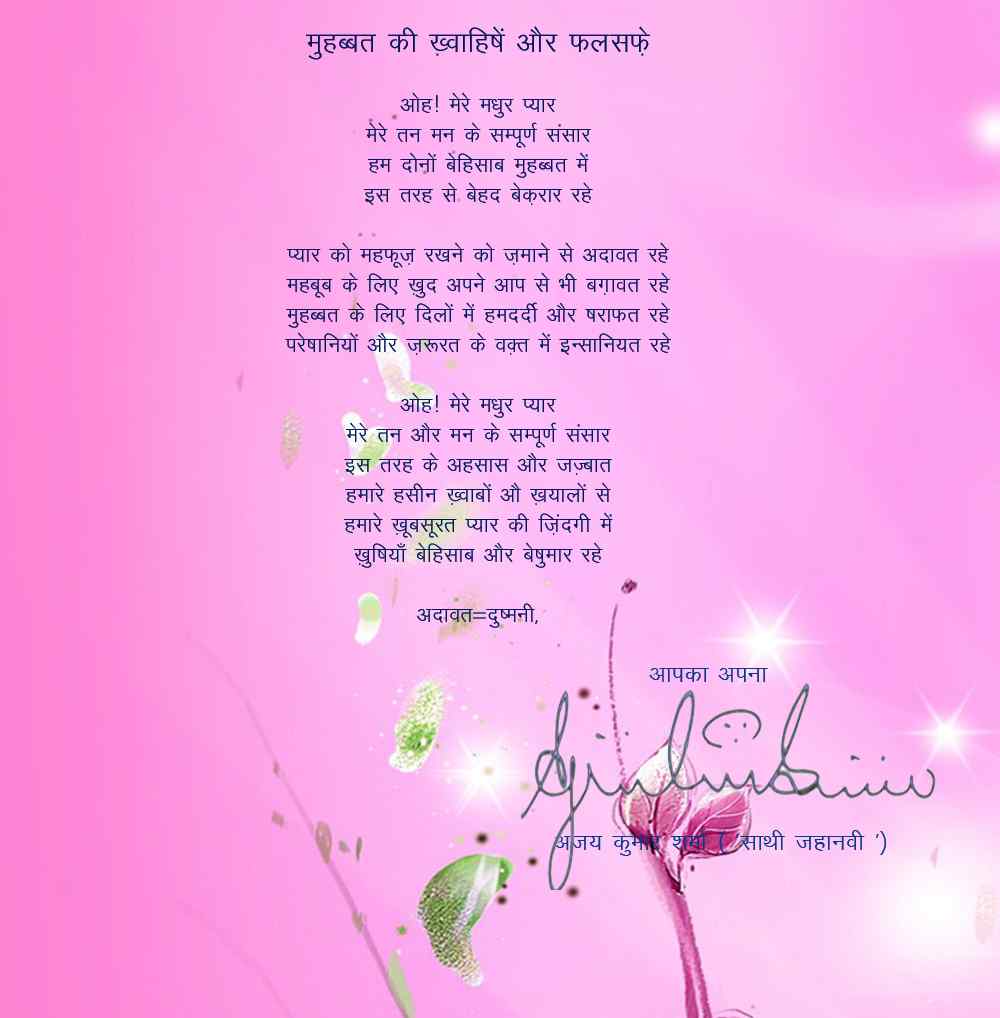 मुहब्बत की ख़्वाहिषें और फलसफ़े
ओह! मेरे मधुर प्यार
मेरे तन मन के सम्पूर्ण संसार
हम दोनों बेहिसाब मुहब्बत में
इस तरह से बेहद बेक़रार रहे
प्यार को महफूज़ रखने को ज़माने से अदावत रहे
महबूब के लिए ख़ुद अपने आप से भी बग़ावत रहे
मुहब्बत के लिए दिलों में हमदर्दी और षराफत रहे
परेषानियों और ज़रूरत के वक़्त में इन्सानियत रहे
ओह! मेरे मधुर प्यार
मेरे तन और मन के सम्पूर्ण संसार
इस तरह के अहसास और जज़्बात
हमारे हसीन ख़्वाबों औ ख़यालों से
हमारे ख़ूबसूरत प्यार की ज़िंदगी में
ख़ुषियाँ बेहिसाब और बेषुमार रहे
अदावत=दुष्मनी,
आपका अपना
अजय कुमार शर्मा ( 'साथी जहानवी ')